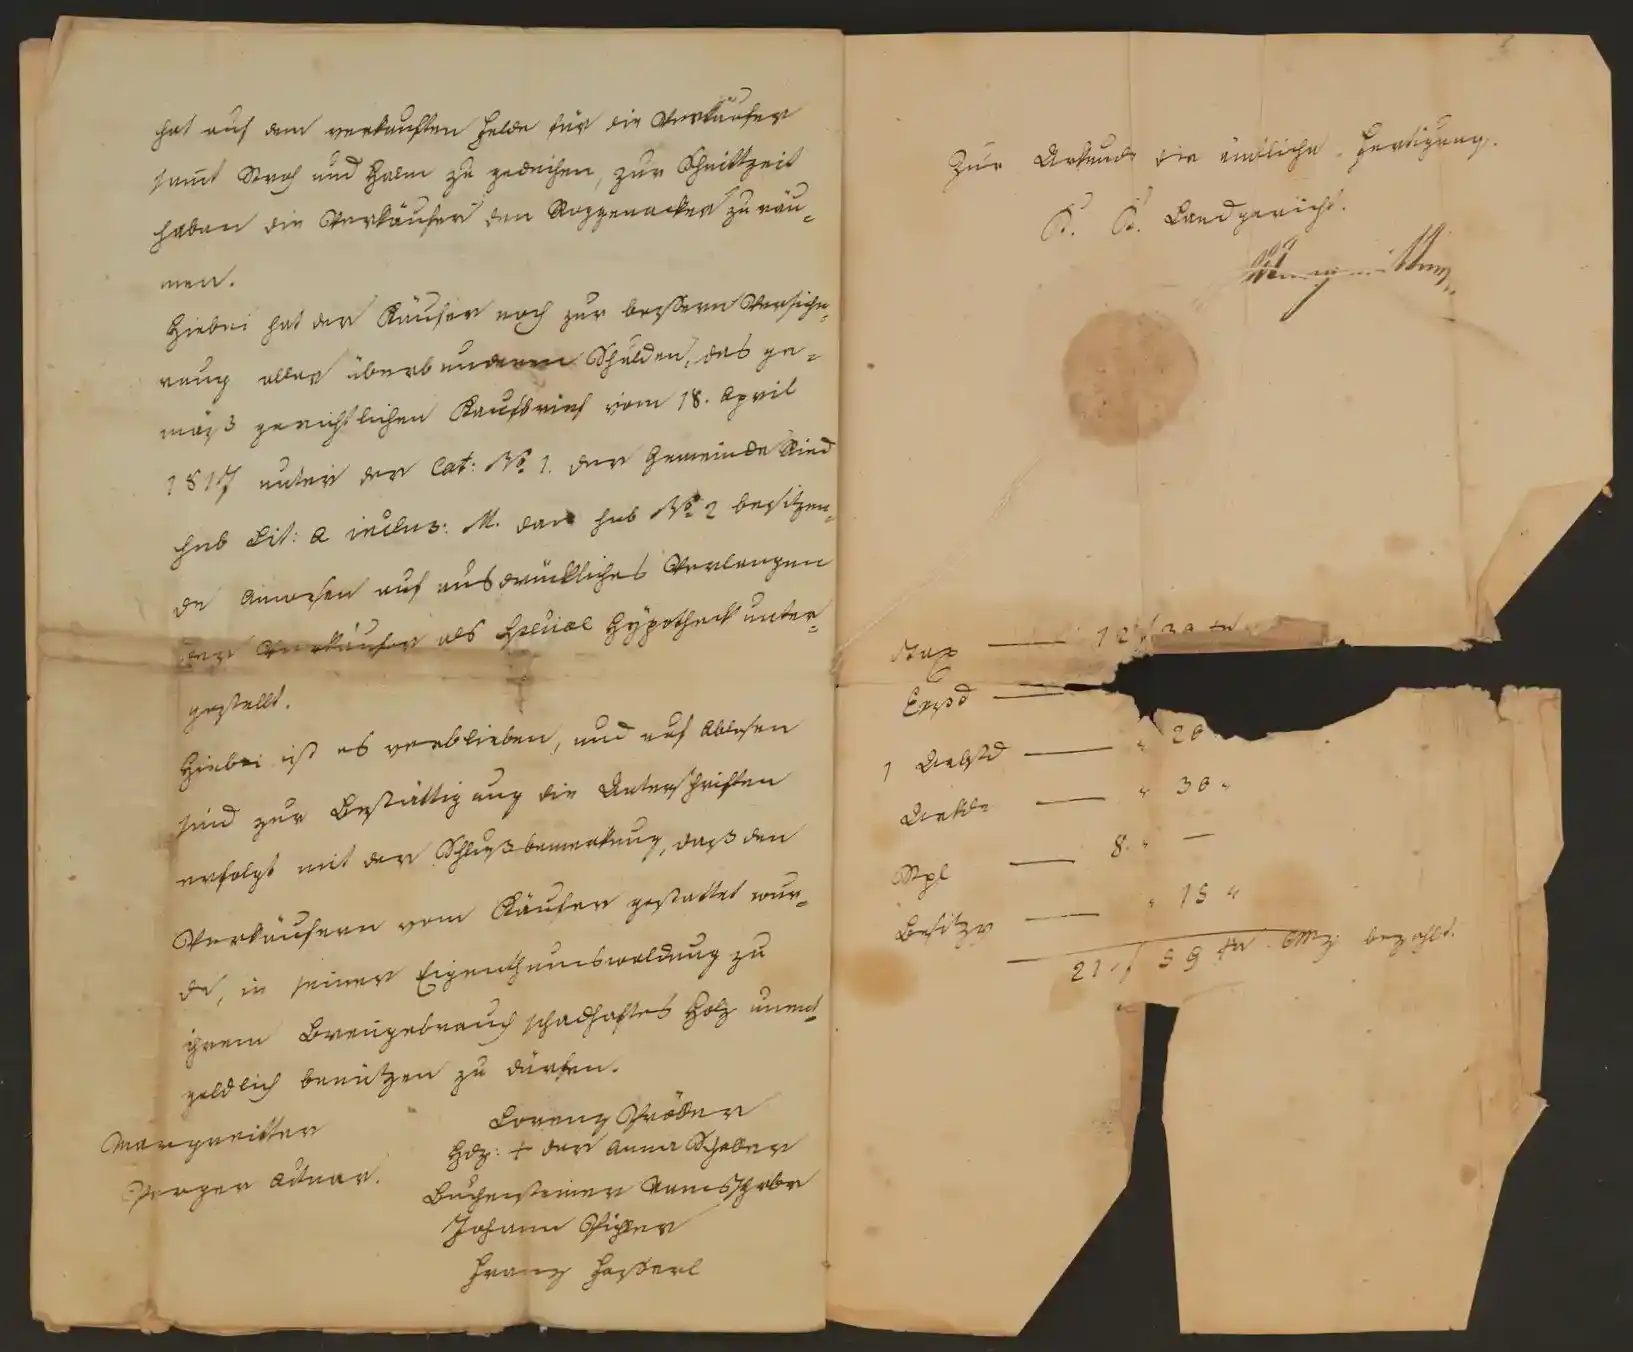 hat auf dem verkauften Felde für die Verkäufer
samt Stroh und Halm zu gedeihen, zur Schnittzeit
haben die Verkäufer den Roggenacker zu räu-
men.
Hiebei hat der Käufer noch zur bessern Versiche-
rung aller überbundenen Schulden, das ge-
mäß gerichtlichen Kaufbrief vom 18. April
1817 unter der Cat: No 1. der Gemeinde Ried
sub Lit: A inclus: M. dan sub No 2 besitzen-
de Anwesen auf ausdrückliches Verlangen
der Verkäufer als Special Hypotheck unter-
gestellt.
Hiebei ist es verblieben, und auf Ablesen
sind zur Bestättigung die Unterschriften
erfolgt mit der Schlußbemerkung, daß den
Verkäufern vom Käufer gestattet wur-
de, in seiner Eigenthumswaldung zu
ihrem Brenngebrauch schadhaftes Holz unent-
geldlich benützen zu dürfen.
Lorenz
Margreitter
Hdz: + der Anna
Perger Actuar.
Namsschrbr
Johann Pichler
Franz Hasserl
Zur Urkunde die ämtliche Fertigung.
K. K. Landgericht.
Tax — 12 f 30 kr
Expd —
1 — " 26
— " 30 "
Stpl — 8 " —
— " 15 "
21 f 59 kr bezahlt.